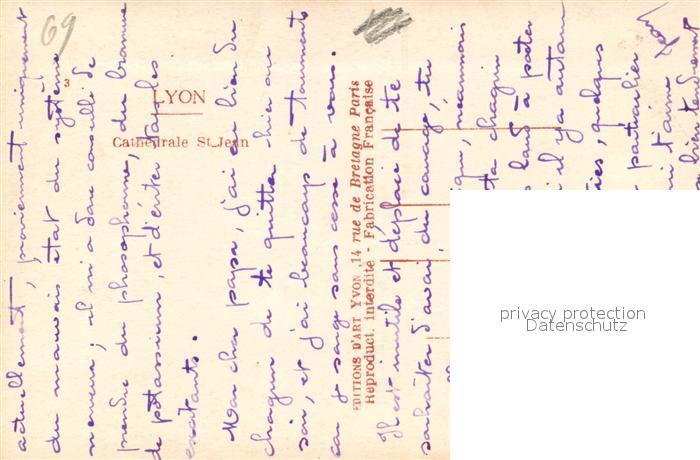 69
3
LYON
Cathédrale St Jean
EDITIONS D'ART YVON, 14 rue de Bretagne Paris
Reproduct. interdite - Fabrication Française
actuellement, proviennent uniquement
du mauvais état du système
nerveux; il m'a donc conseillé de
prendre du phosophore, du brome
de potassium, et d'éviter tous les
excitants.
Mon cher papa, j'ai eu bien du
chagrin de te quitter hier au
soir, et j'ai beaucoup de tourments
car je songe sans cesse à vous.
Il est inutile et déplacé de te
souhaiter d'avoir du courage, tu
néanmoins
ta chagrin
lourd à porter
il y a autour
quelques
particulier
t'aime
tendrement
privacy protection
Datenschutz